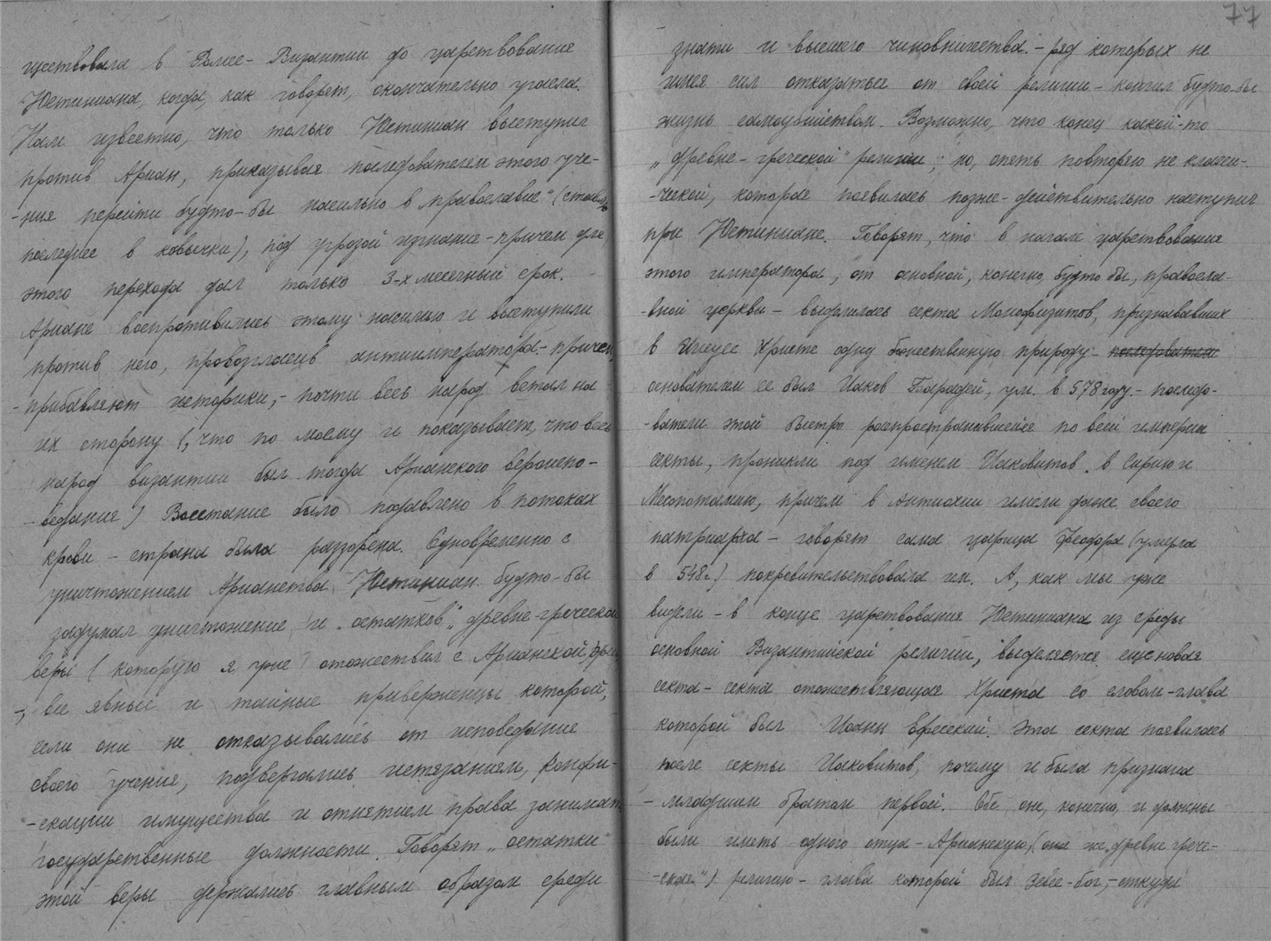 77
ществовала в Ромее-Византии до царствования
Юстиниана, когда, как говорят, окончательно угасла.
Нам известно, что только Юстиниан выступил
против Ариан, приказывая последователям этого уче-
-ния перейти будто-бы насильно в „православие“ (ставлю
последнее в ковычки), под угрозой изгнания-причем для
этого перехода дал только 3-х месячный срок.
Ариане воспротивились этому насилию и выступили
против него, провозгласив антиимператора-причем
-прибавляют историки,- почти весь народ встал на
их сторону (, что по моему и показывает, что весь
народ византии был тогда Арианского вероиспо-
-ведания) Восстание было подавлено в потоках
крови - страна была разорена. Одновременно с
уничтожением Арианства Юстиниан будто-бы
задумал уничтожение и „остатков“ древне-греческой
веры ( которую я уже отожествил с Арианской
-, все явные и тайные приверженцы которой,
если они не отказывались от исповедания
своего учения, подвергались истязаниям, конфи-
-скации имущества и отнятием права занимать
государственные должности. Говорят „остатки“
этой веры держались главным образом среди
знати и высшего чиновничества - ряд которых не
имея сил отказаться от своей религии - кончил будто-бы
жизнь самоубийством. Возможно, что конец какой-то
„древне-греческой“ религии; но, опять повторяю не класси-
-ческой, которая появилась позже-действительно наступил
при Юстиниане. Говорят, что в начале царствования
этого императора, от основной, конечно, будто бы, правосла-
-вной церкви - выделилась секта Монофизитов, признававших
в Иисусе Христе одну божественную природу-
основателем ее был Иаков Барадей, ум. в 578 году - последо-
-ватели этой быстро распространившейся по всей империи
секты, проникли под именем Иаковитов в Сирию и
Месопотамию, причем в Антиохии имели даже своего
патриарха - говорят сама царица Феодора (умерла
в 548 г.) покровительствовала им. А, как мы уже
видели - в конце царствования Юстиниана из среды
основной Византийской религии, выделяется еще новая
секта-секта отожествляющая Христа со словом-глава
которой был Иоанн Ефесский. Эта секта появилась
после секты Иаковитов, почему и была признана
-младшим братом первой. Обе они, конечно, и должны
были иметь одного отца - Арианскую (она же „древне грече-
-ская“) религию - глава которой был Зевс-бог,-откуда